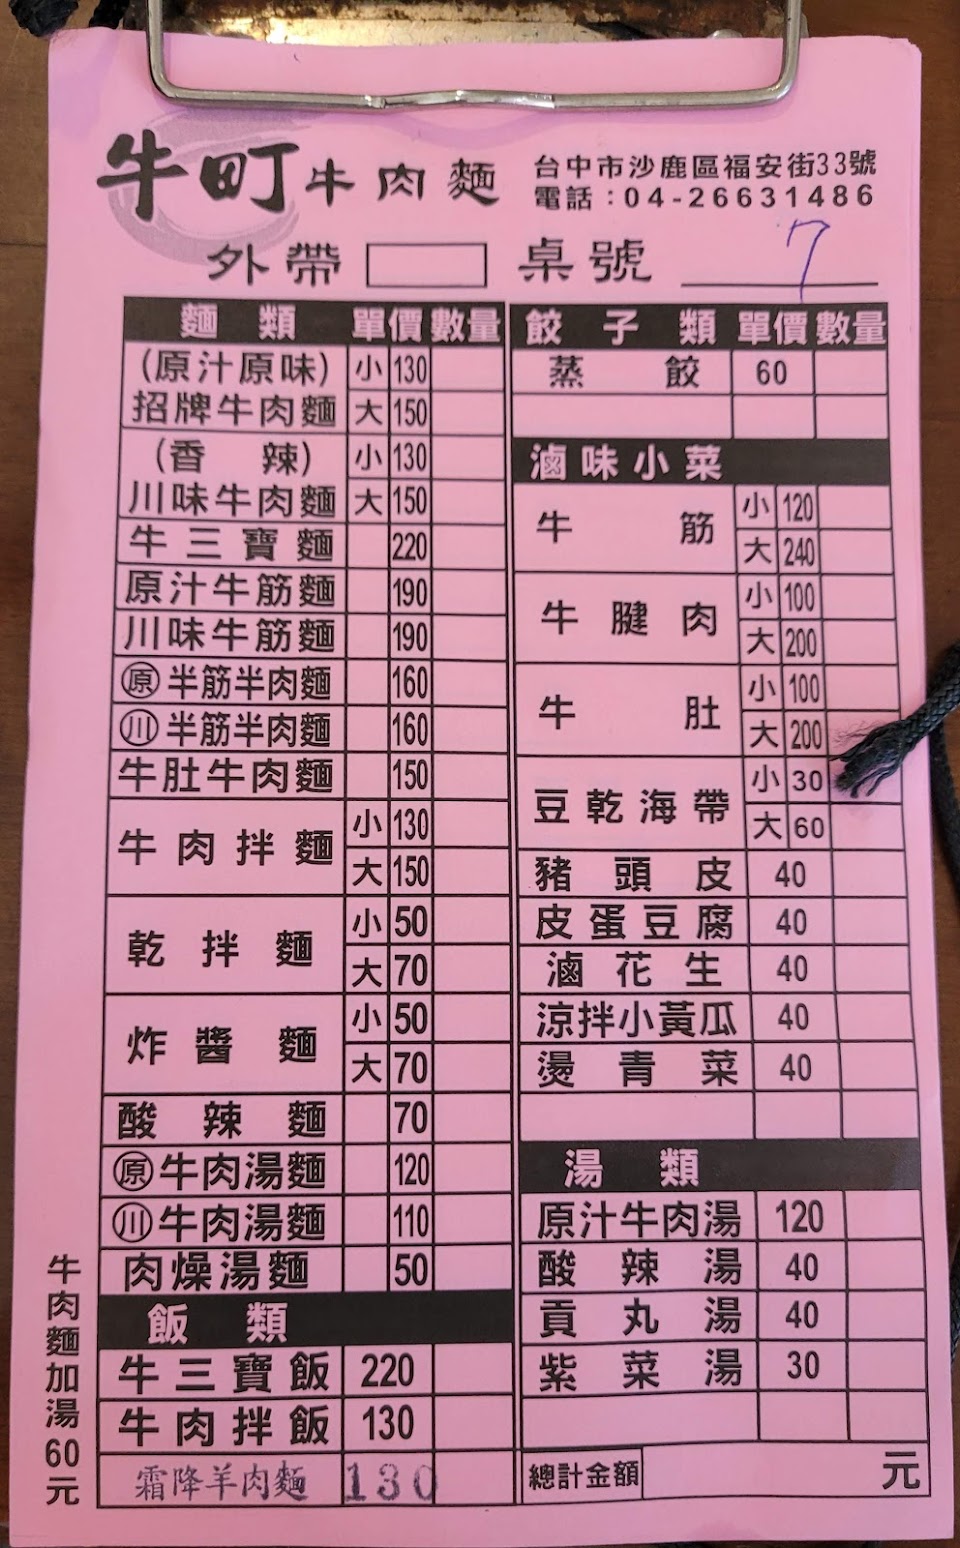 牛町牛肉麵
台中市沙鹿區福安街33號
電話：04-26631486
外帶 桌號 7
麵類 單價 數量
(原汁原味) 小 130
招牌牛肉麵 大 150
(香辣) 小 130
川味牛肉麵 大 150
牛三寶麵 220
原汁牛筋麵 190
川味牛筋麵 190
原 半筋半肉麵 160
川 半筋半肉麵 160
牛肚牛肉麵 150
牛肉拌麵 小 130
大 150
乾拌麵 小 50
大 70
炸醬麵 小 50
大 70
酸辣麵 70
原 牛肉湯麵 120
川 牛肉湯麵 110
肉燥湯麵 50
飯類
牛三寶飯 220
牛肉拌飯 130
霜降羊肉麵 130
牛肉麵加湯60元
餃子類 單價 數量
蒸餃 60
滷味小菜
牛筋 小 120
大 240
牛腱肉 小 100
大 200
牛肚 小 100
大 200
豆乾海帶 小 30
大 60
豬頭皮 40
皮蛋豆腐 40
滷花生 40
涼拌小黃瓜 40
燙青菜 40
湯類
原汁牛肉湯 120
酸辣湯 40
貢丸湯 40
紫菜湯 30
總計金額 元